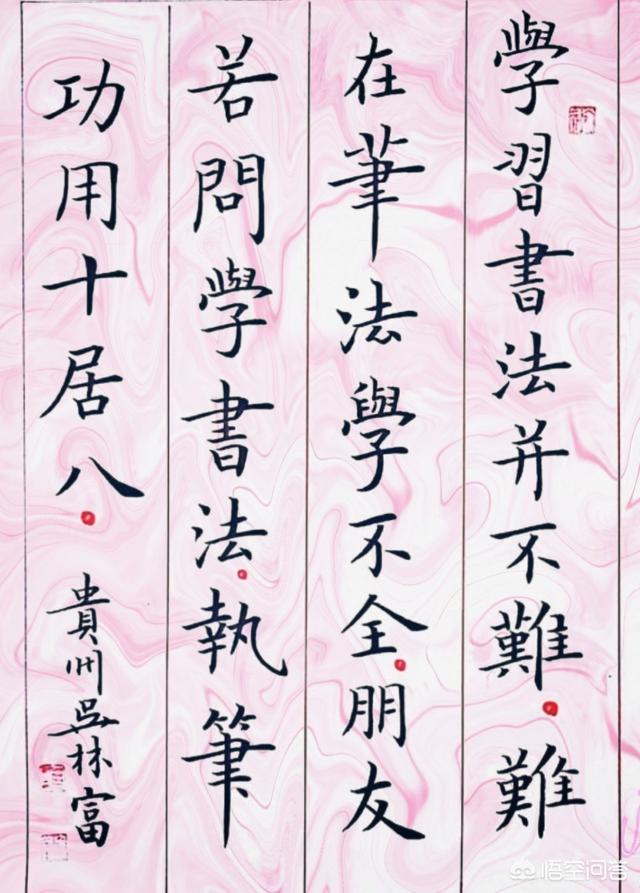 學習書法并不難難
在筆法學不全朋友
若問學書法執筆
功用十居八
貴州吳林富
悟空问答